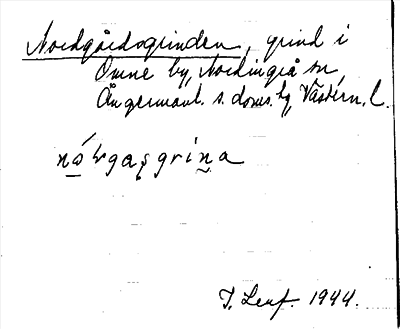 Nordgårdsgrinden, grind i
Omne by, Nordingrå sn
Ångermanl. s. doms. hg, Västern. l.
nó̱ɽgaʂgrin̠a
T. Lenf. 1944.